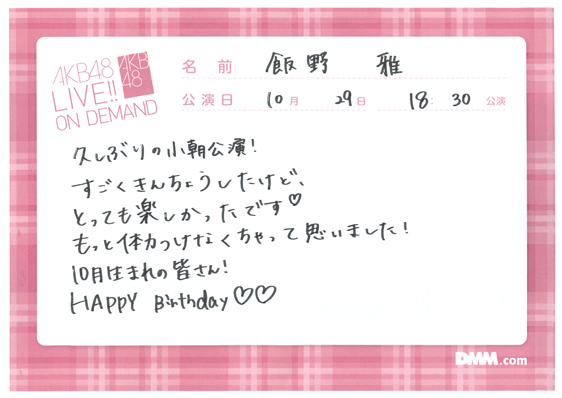 AKB48
LIVE!!
ON DEMAND
AKB
48
名 前 飯野 雅
公演日 10月 29日 18:30 公演
久しぶりの小朝公演!
すごくきんちょうしたけど、
とっても楽しかったです♡
もっと体力つけなくちゃって思いました!
10月生まれの皆さん!
HAPPY Birthday♡♡
DMM.com